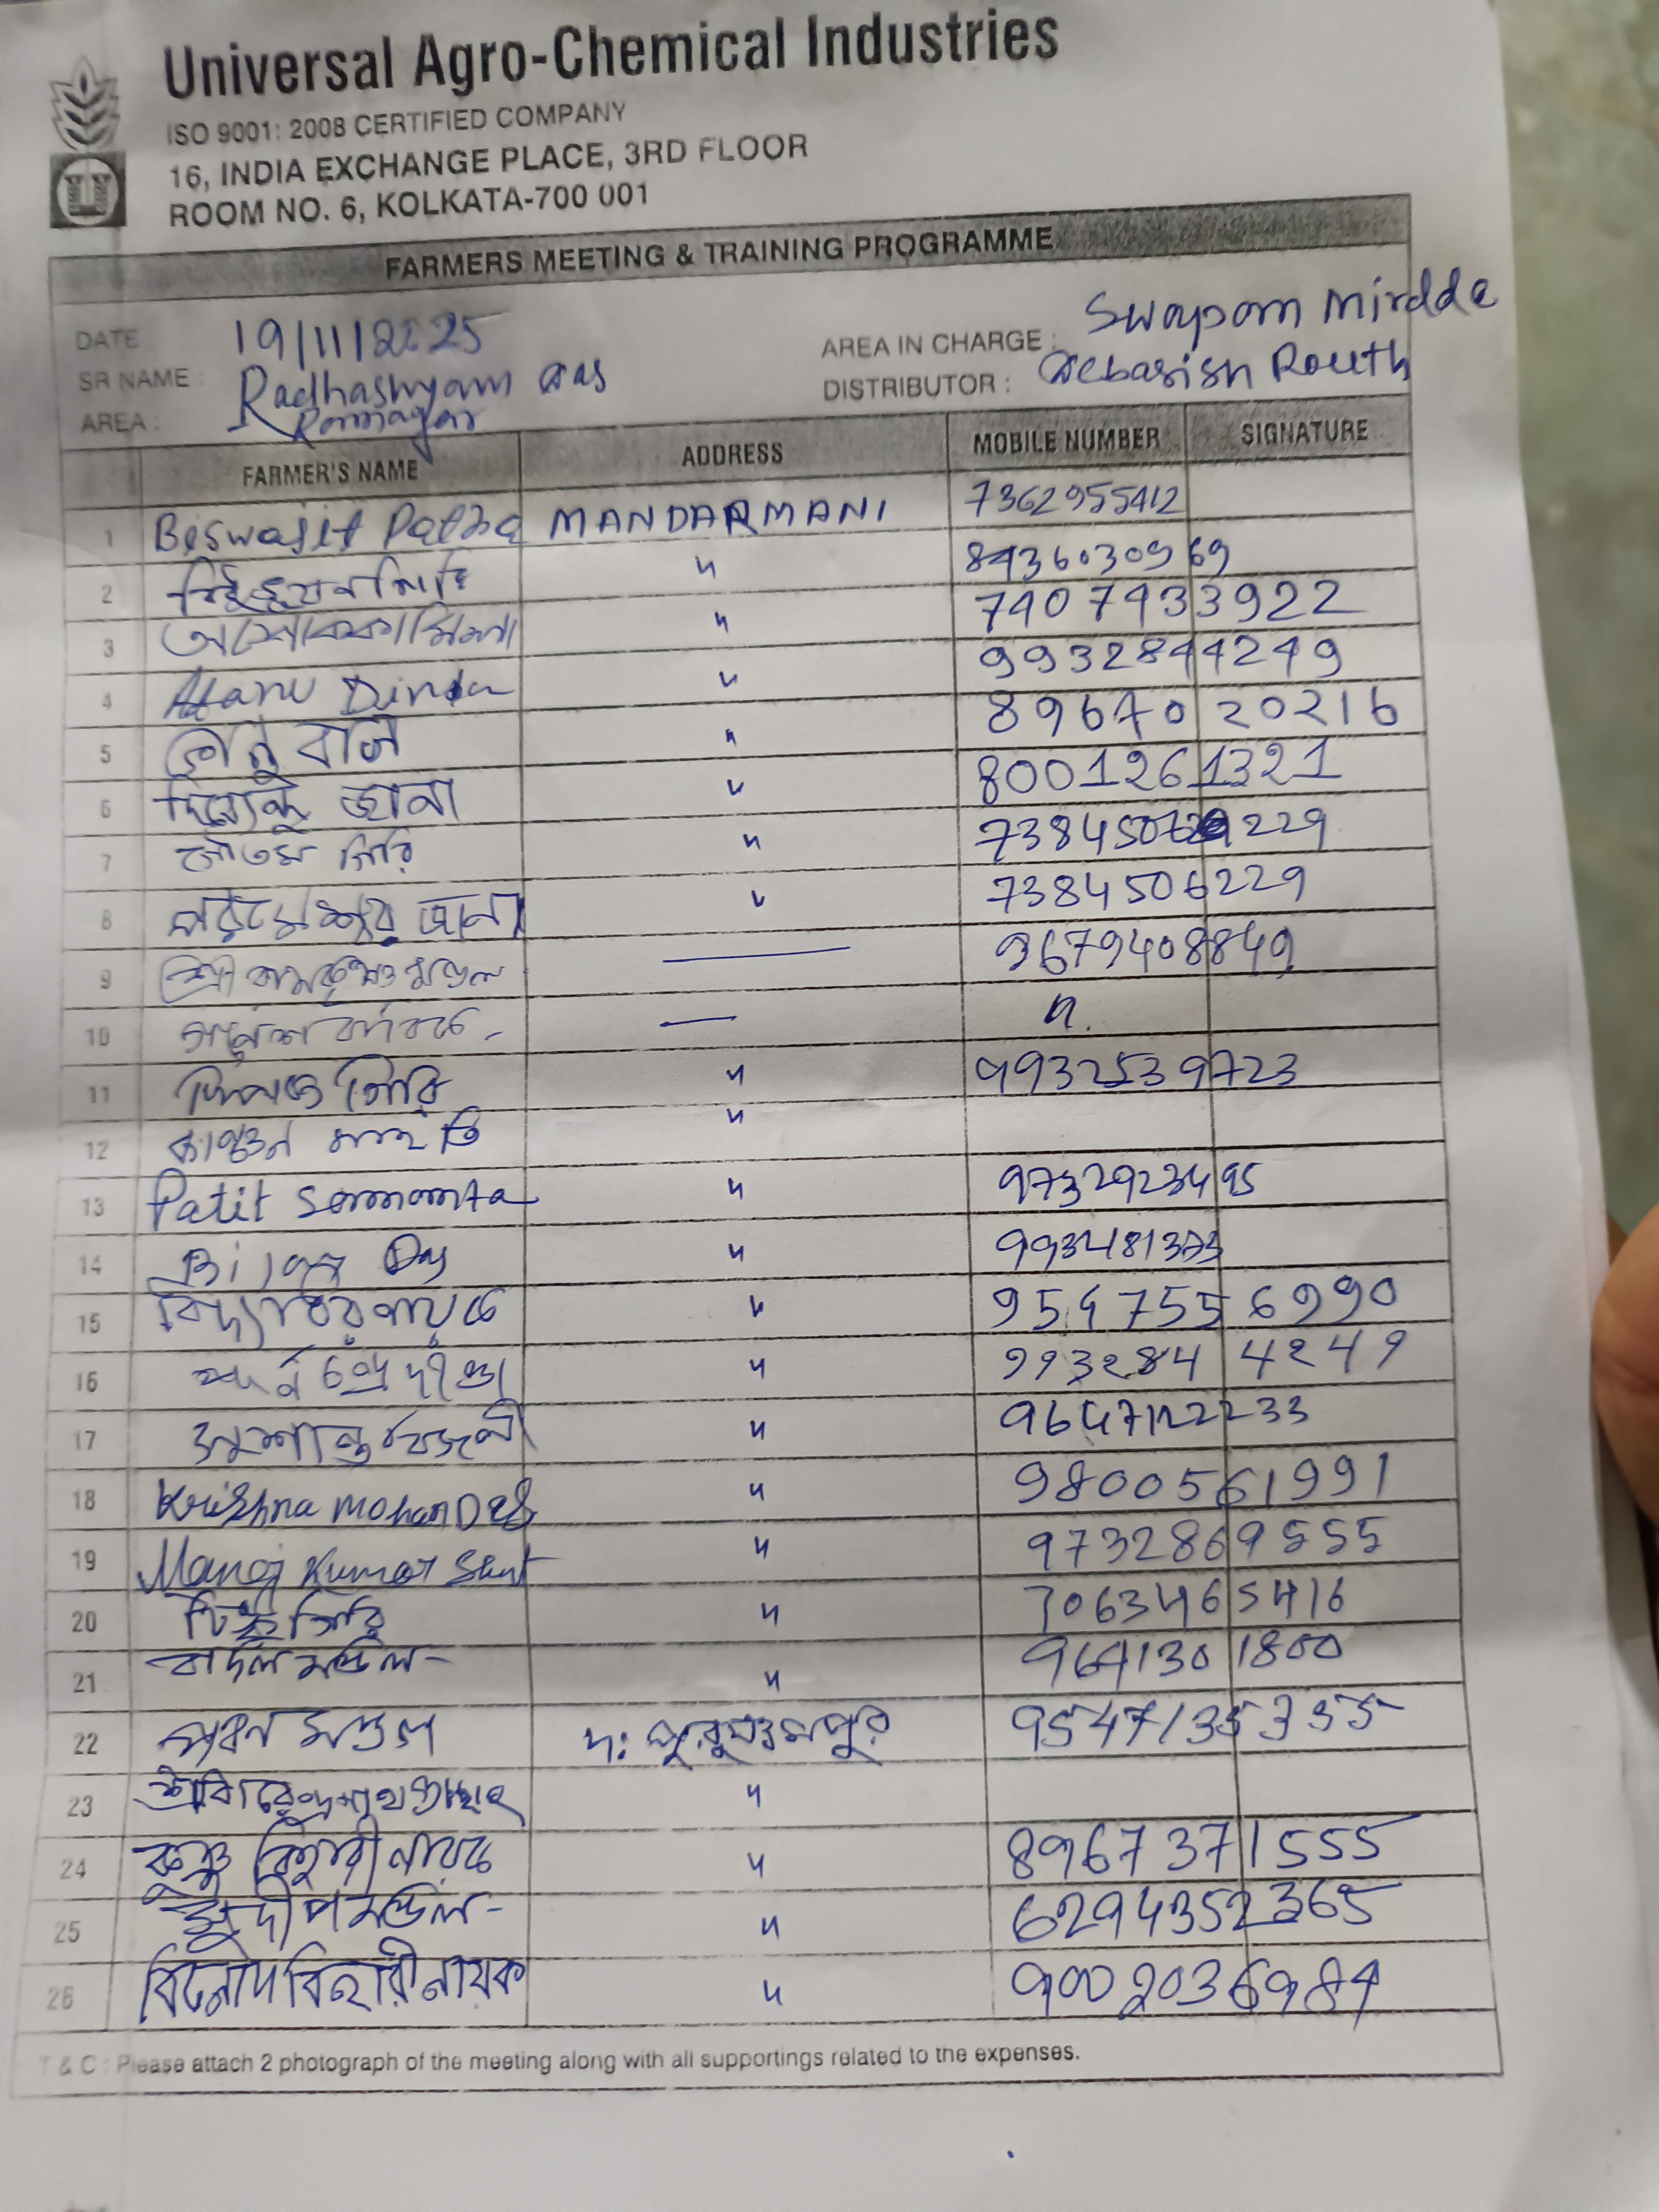 Universal Agro-Chemical Industries
ISO 9001: 2008 CERTIFIED COMPANY
16, INDIA EXCHANGE PLACE, 3RD FLOOR
ROOM NO. 6, KOLKATA-700 001
FARMERS MEETING & TRAINING PROGRAMME
DATE : 19/11/2025
AREA IN CHARGE : Swapan Mirdda
SR NAME : Radhashyam das
DISTRIBUTOR : Debasish Routh
AREA : Ramnagar
FARMER'S NAME ADDRESS MOBILE NUMBER SIGNATURE
1 Biswajit Patra MANDARMANI 7362955412
2 গিরি " 8436030969
3 " 7407433922
4 Atanu Dinda " 9932844249
5 " 8967020216
6 দিব্যেন্দু জানা " 8001261321
7 গৌতম গিরি " 229
8 পরমেশ্বর জানা " 7384506229
9 শ্রী রামকৃষ্ণ মন্ডল — 9679408849
10 —
11 গিরি " 9932539723
12 কাঞ্চন মাইতি "
13 Patit Samanta " 9732923495
14 Bijay Das "
15 " 9547556990
16 " 9932844249
17 সুশান্ত " 9647122233
18 Krishna Mohan " 9800561991
19 Manoj Kumar " 9732869555
20 গিরি " 7063465416
21 বাদল মন্ডল " 9641301800
22 পবন মন্ডল দঃ পুরুষোত্তমপুর 9547135355
23 "
24 নায়ক " 8967371555
25 সুদীপ মন্ডল " 6294352365
26 বিনোদ বিহারী নায়ক " 9002036984
T & C : Please attach 2 photograph of the meeting along with all supportings related to the expenses.